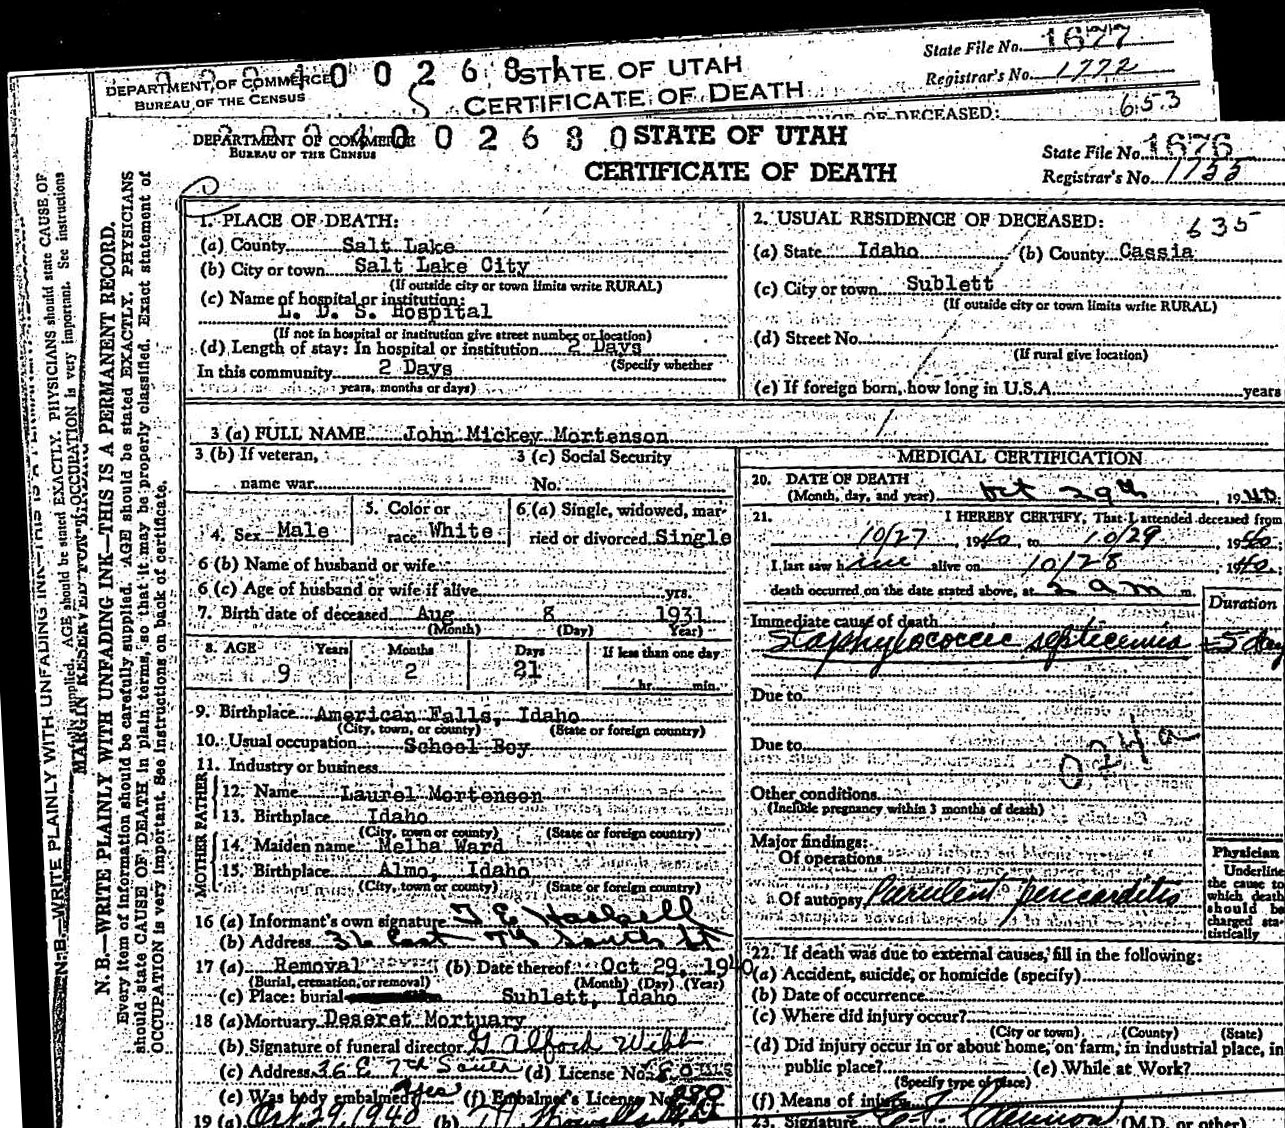 DEPARTMENT OF COMMERCE
BUREAU OF THE CENSUS
STATE OF UTAH
CERTIFICATE OF DEATH
State File No. 1677
Registrar's No. 1772
OF DECEASED: 653
DEPARTMENT OF COMMERCE 0 0 2 6 8 0
BUREAU OF THE CENSUS
STATE OF UTAH
CERTIFICATE OF DEATH
State File No. 1676
Registrar's No. 1755
N. B.—WRITE PLAINLY WITH UNFADING INK—THIS IS A PERMANENT RECORD.
Every item of information should be carefully supplied. AGE should be stated EXACTLY. PHYSICIANS
should state CAUSE OF DEATH in plain terms, so that it may be properly classified. Exact statement of
OCCUPATION is very important. See instructions on back of certificate.
MARGIN RESERVED FOR BINDING
1. PLACE OF DEATH:
(a) County Salt Lake
(b) City or town Salt Lake City
(If outside city or town limits write RURAL)
(c) Name of hospital or institution:
L. D. S. Hospital
(If not in hospital or institution give street number or location)
(d) Length of stay: In hospital or institution 2 Days
(Specify whether
In this community 2 Days
years, months or days)
2. USUAL RESIDENCE OF DECEASED: 635
(a) State Idaho (b) County Cassia
(c) City or town Sublett
(If outside city or town limits write RURAL)
(d) Street No.
(If rural give location)
(e) If foreign born, how long in U.S.A. years
3 (a) FULL NAME John Mickey Mortenson
3 (b) If veteran, name war
3 (c) Social Security No.
4. Sex Male
5. Color or race White
6. (a) Single, widowed, married or divorced Single
6 (b) Name of husband or wife
6 (c) Age of husband or wife if alive yrs.
7. Birth date of deceased Aug 8 1931
(Month) (Day) Year)
8. AGE Years Months Days If less than one day
9 2 21 hr. min.
9. Birthplace American Falls, Idaho
(City, town, or county) (State or foreign country)
10. Usual occupation School Boy
11. Industry or business
FATHER
12. Name Laurel Mortenson
13. Birthplace Idaho
(City, town or county) (State or foreign country)
MOTHER
14. Maiden name Melba Ward
15. Birthplace Almo, Idaho
(City, town or county) (State or foreign country)
16 (a) Informant's own signature
(b) Address 36 East 7th South St
17 (a) Removal (b) Date thereof Oct 29, 1940
(Burial, cremation, or removal) (Month) (Day) (Year)
(c) Place: burial Sublett, Idaho
18 (a) Mortuary Deseret Mortuary
(b) Signature of funeral director G Alford Webb
(c) Address 36 E 7th South (d) License No.
(e) Was body embalmed yes (f) Embalmer's License No.
19 (a) Oct 29, 1940 (b)
MEDICAL CERTIFICATION
20. DATE OF DEATH
(Month, day, and year) Oct 29th, 1940
21. I HEREBY CERTIFY, That I attended deceased from
10/27, 1940, to 10/29, 1940
I last saw him alive on 10/28, 1940
death occurred on the date stated above, at 2 a m m.
Immediate cause of death
Duration
Staphylococcic septicemia
Due to
Due to
024a
Other conditions
(Include pregnancy within 3 months of death)
Major findings:
Of operations
Of autopsy Purulent pericarditis
Physician
Underline
the cause to
which death
should be
charged sta-
tistically
22. If death was due to external causes, fill in the following:
(a) Accident, suicide, or homicide (specify)
(b) Date of occurrence
(c) Where did injury occur?
(City or town) (County) (State)
(d) Did injury occur in or about home, on farm, in industrial place, in
public place? (e) While at Work?
(Specify type of place)
(f) Means of injury
23. Signature Cannon (M.D. or other)